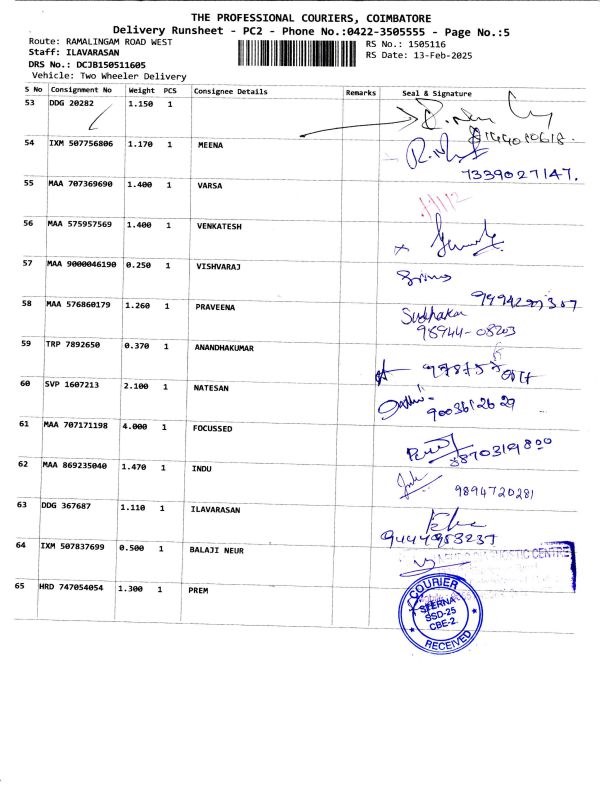 THE PROFESSIONAL COURIERS, COIMBATORE
Delivery Runsheet - PC2 - Phone No.:0422-3505555 - Page No.:5
Route: RAMALINGAM ROAD WEST
RS No.: 1505116
Staff: ILAVARASAN
RS Date: 13-Feb-2025
DRS No.: DCJB150511605
Vehicle: Two Wheeler Delivery
S No Consignment No Weight PCS Consignee Details Remarks Seal & Signature
53 DDG 20282 1.150 1
54 IXM 507756806 1.170 1 MEENA
7339027147.
55 MAA 707369690 1.400 1 VARSA
56 MAA 575957569 1.400 1 VENKATESH
57 MAA 9000046190 0.250 1 VISHVARAJ
58 MAA 576860179 1.260 1 PRAVEENA
Sudhakar
98944-08203
59 TRP 7892650 0.370 1 ANANDHAKUMAR
60 SVP 1607213 2.100 1 NATESAN
9003612629
61 MAA 707171198 4.000 1 FOCUSSED
62 MAA 869235040 1.470 1 INDU
9894720281
63 DDG 367687 1.110 1 ILAVARASAN
9444953237
64 IXM 507837699 0.500 1 BALAJI NEUR
DIAGNOSTIC CENTRE
65 HRD 747054054 1.300 1 PREM
COURIER
SSD-25
CBE-2.
RECEIVED